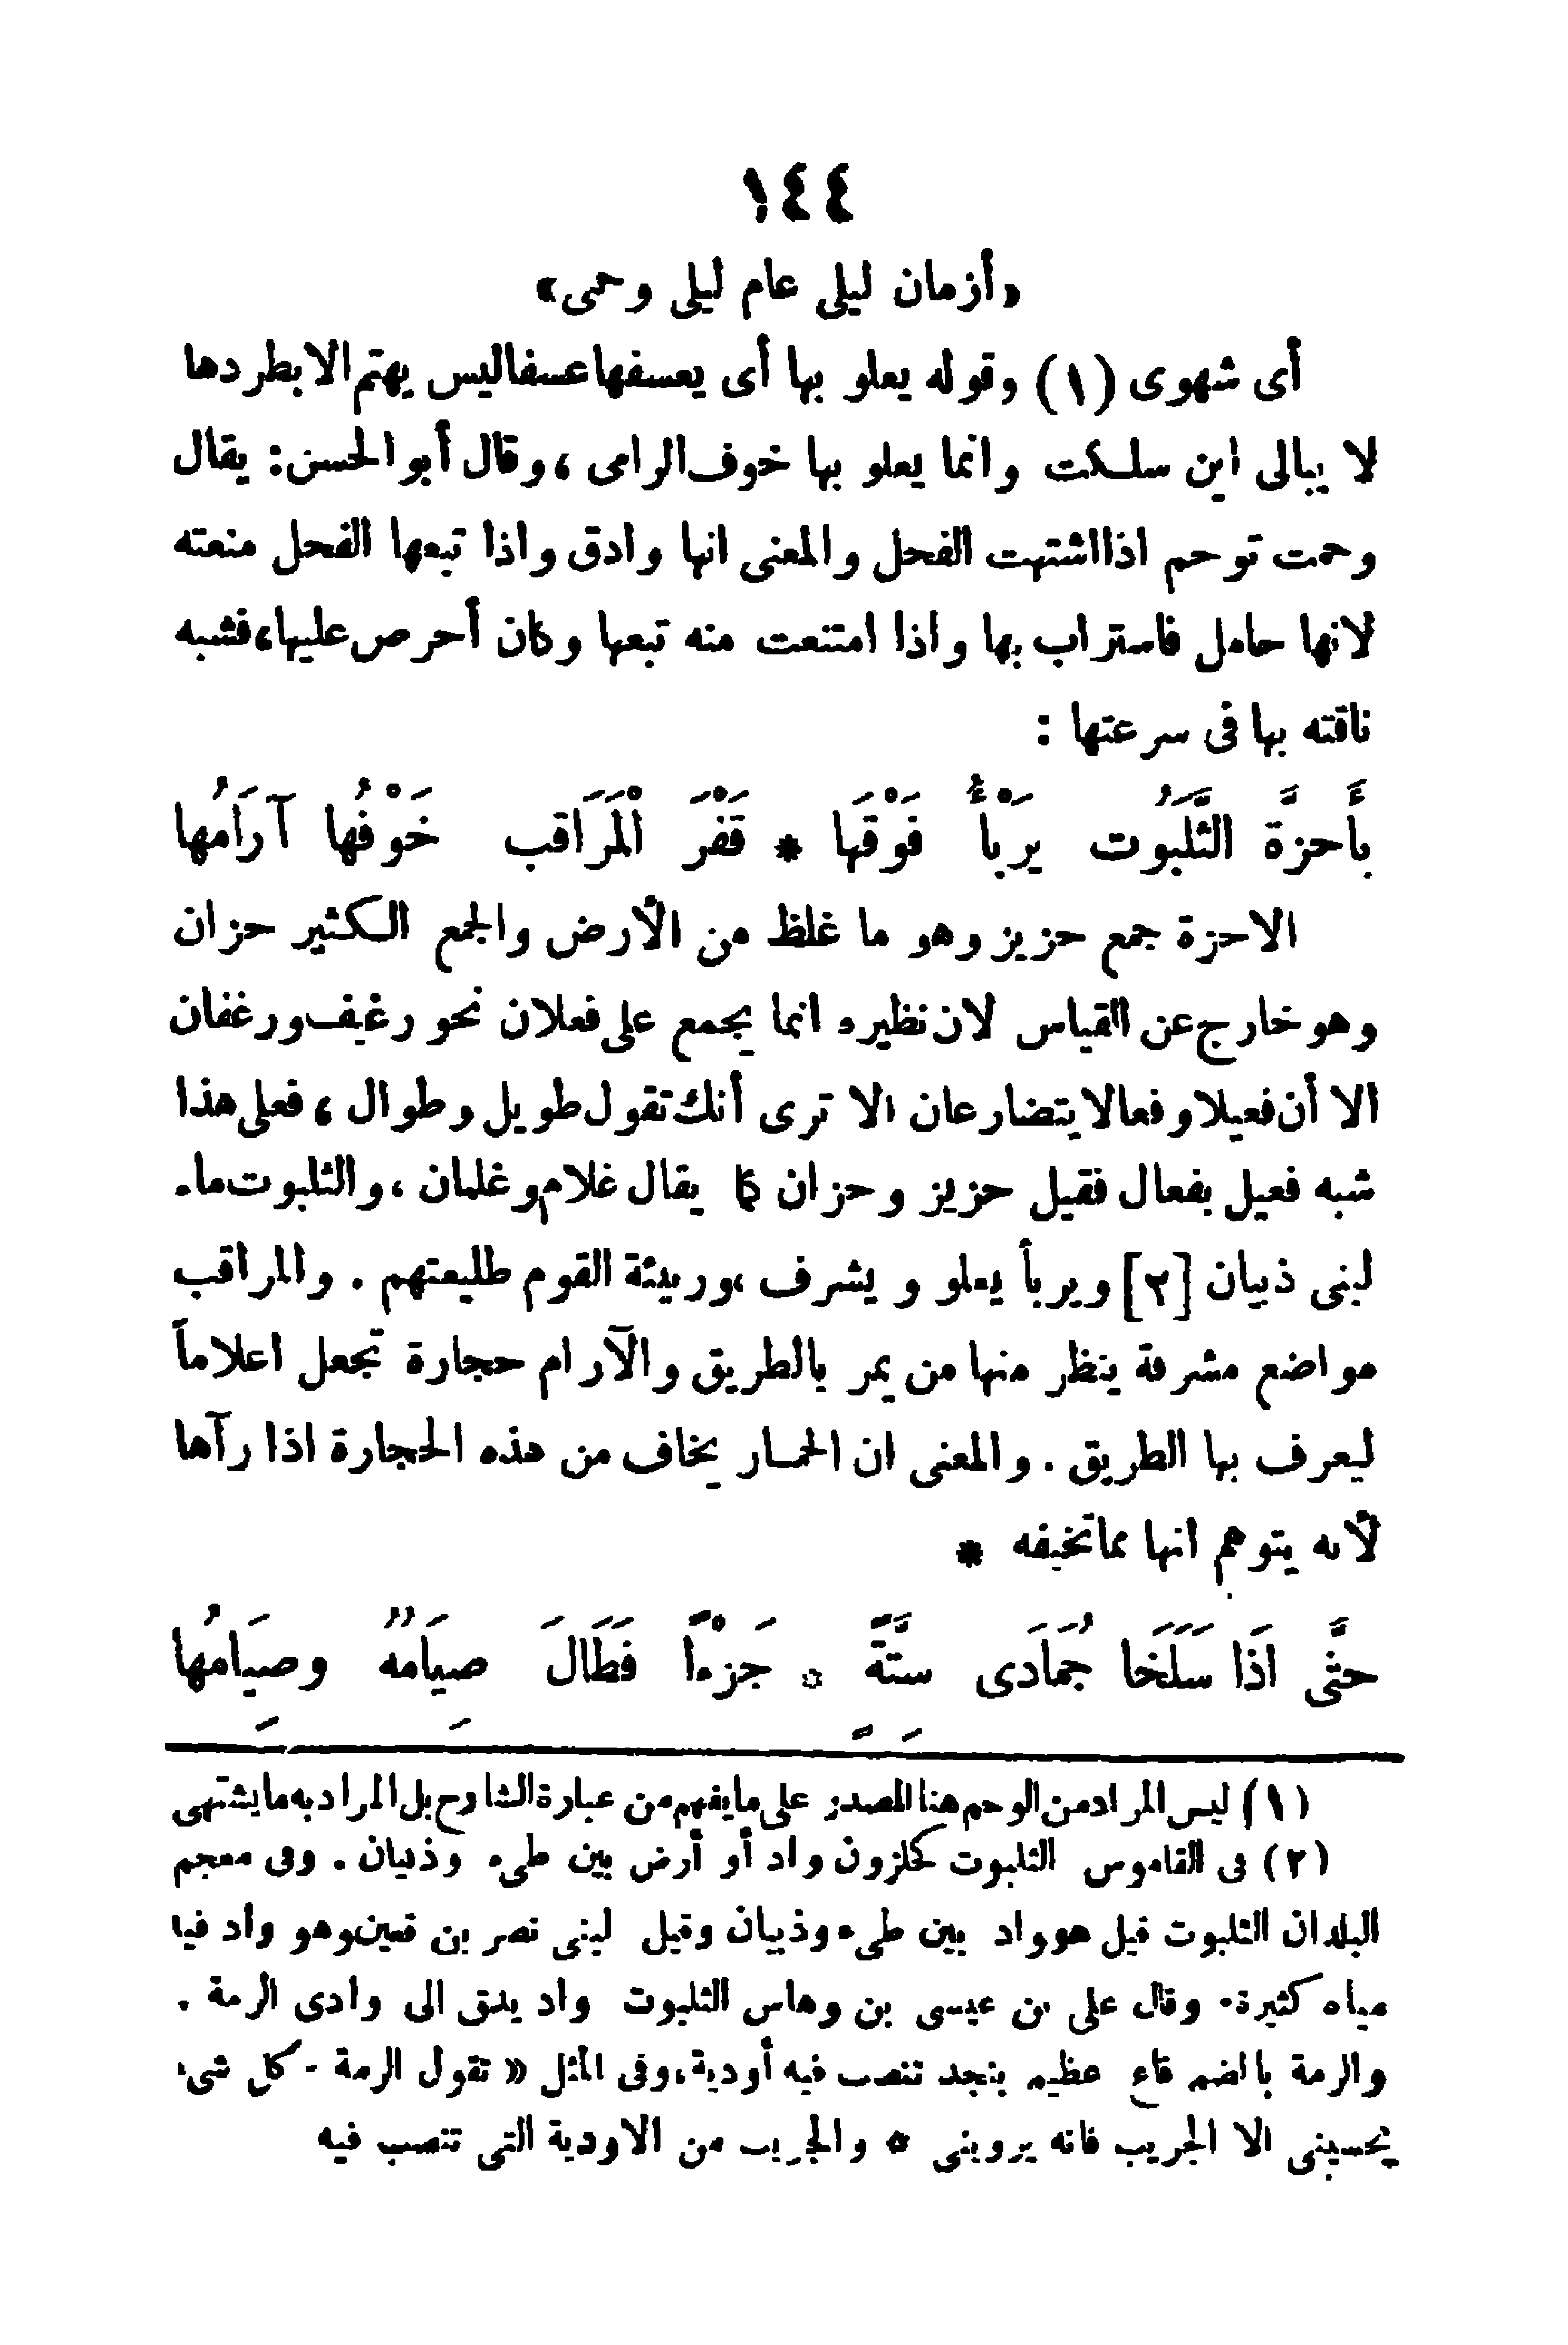 ١٤٤
«أزمان ليلى عام ليلى وحمى»
أى شهوى (١) وقوله يعلو بها أى يعسفها عسفا ليس يهتم الا بطردها
لا يبالى اين سلكت وانما يعلو بها خوف الرامى ، وقال أبو الحسن : يقال
وحمت توحم اذا اشتهت الفحل والمعنى انها وادق واذا تبعها الفحل منعته
لانها حامل فاستراب بها واذا امتنعت منه تبعها وكان أحرص عليها، فشبه
ناقته بها فى سرعتها :
بأَحزَّة الثَّلَبُوت يَرْبأُ فَوْقَها * قَفْرَ الْمَرَاقب خَوْفُها آرَامُها
الاحزة جمع حزيز وهو ما غلظ من الأرض والجمع الكثير حزان
وهو خارج عن القياس لان نظيره انما يجمع على فعلان نحو رغيف ورغفان
الا أن فعيلا وفعالا يتضارعان الا ترى أنك تقول طويل وطوال ، فعلى هذا
شبه فعيل بفعال فقيل حزيز وحزان كما يقال غلام وغلمان ، والثلبوت ماء
لبنى ذبيان [٢] ويربأ يعلو و يشرف ، وربيئة القوم طليعتهم . والمراقب
مواضع مشرفة ينظر منها من يمر بالطريق والآرام حجارة تجعل اعلاماً
ليعرف بها الطريق . والمعنى ان الحمار يخاف من هذه الحجارة اذا رآها
لأنه يتوهم انها مما تخيفه *
حتَّى اذَا سَلَخَا جُمَادَى ستَّةً * جَزْءاً فَطَالَ صِيَامُهُ وصِيَامُها
(١) ليس المراد من الوحم هنا المصدر على ما يفهم من عبارة الشارح بل المراد به ما يشتهى
(٢) فى القاموس الثلبوت كحلزون واد أو أرض بين طىء وذبيان . وفى معجم
البلدان الثلبوت قيل هو واد بين طىء وذبيان وقيل لبنى نصر بن قعين وهو واد فيه
مياه كثيرة . وقال على بن عيسى بن وهاس الثلبوت واد يدفق الى وادى الرمة .
والرمة بالضم قاع عظيم بنجد تنصب فيه أودية ، وفى المثل « تقول الرمة - كل شىء
يحسينى الا الجريب فانه يروينى * والجريب من الاودية التى تنصب فيه